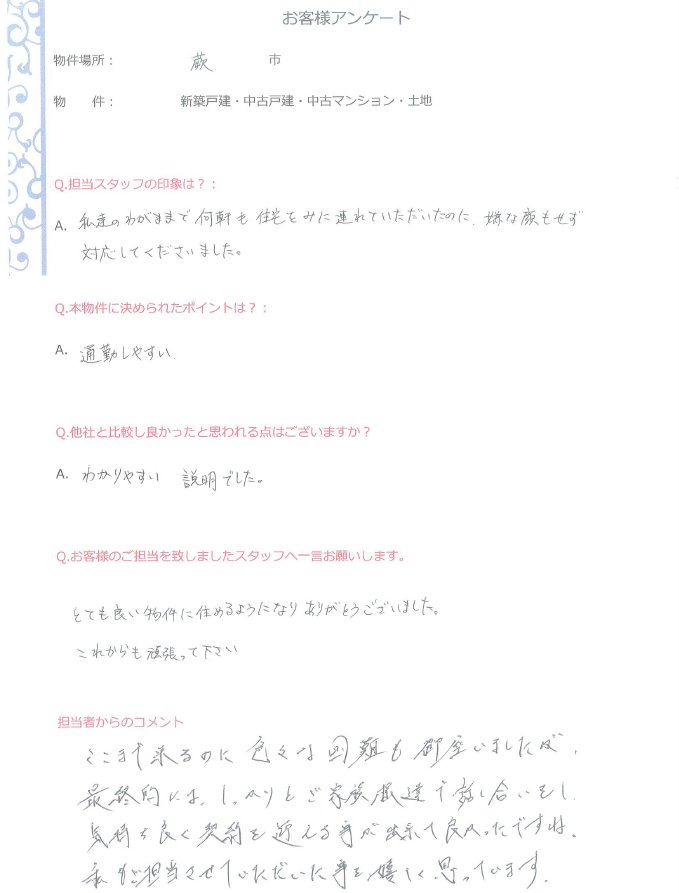 お客様アンケート
物件場所： 蕨 市
物　件： 新築戸建・中古戸建・中古マンション・土地
Q.担当スタッフの印象は？：
A. 私達のわがままで何軒も住宅をみに連れていただいたのに、嫌な顔もせず
対応してくださいました。
Q.本物件に決められたポイントは？：
A. 通勤しやすい
Q.他社と比較し良かったと思われる点はございますか？
A. わかりやすい 説明でした。
Q.お客様のご担当を致しましたスタッフへ一言お願いします。
とても良い物件に住めるようになりありがとうございました。
これからも頑張って下さい
担当者からのコメント
ここまで来るのに色々な困難も御座いましたが、
最終的には、しっかりとご家族 達で話し合いをし、
気持ち良く契約を迎える事が出来て良かったですね。
私もご担当させていただいた事を嬉しく思っています。